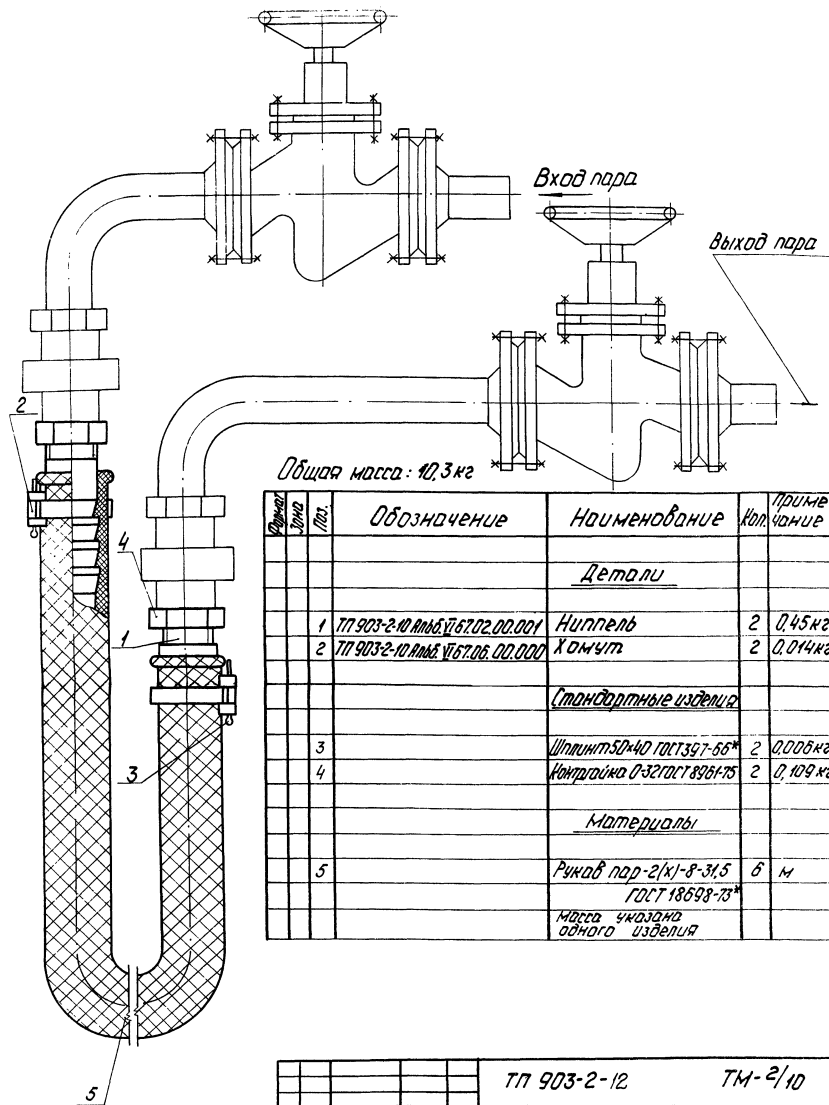 Вход пара
Выход пара
2
Общая масса: 10,3 кг
Формат Зона Поз. Обозначение Наименование Кол. Примечание
Детали
1 ТП 903-2-10 Альб. VI 67.02.00.001 Ниппель 2 0,45кг
2 ТП 903-2-10 Альб. VI 67.06.00.000 Хомут 2 0,014кг
Стандартные изделия
3 Шплинт 5,0×40 ГОСТ 397-66* 2 0,006кг
4 Контргайка 0-32 ГОСТ 8961-75 2 0,109 кг
Материалы
5 Рукав пар-2(х)-8-31,5 6 м
ГОСТ 18698-73*
масса указана
одного изделия
4
1
3
5
ТП 903-2-12 ТМ-2/10